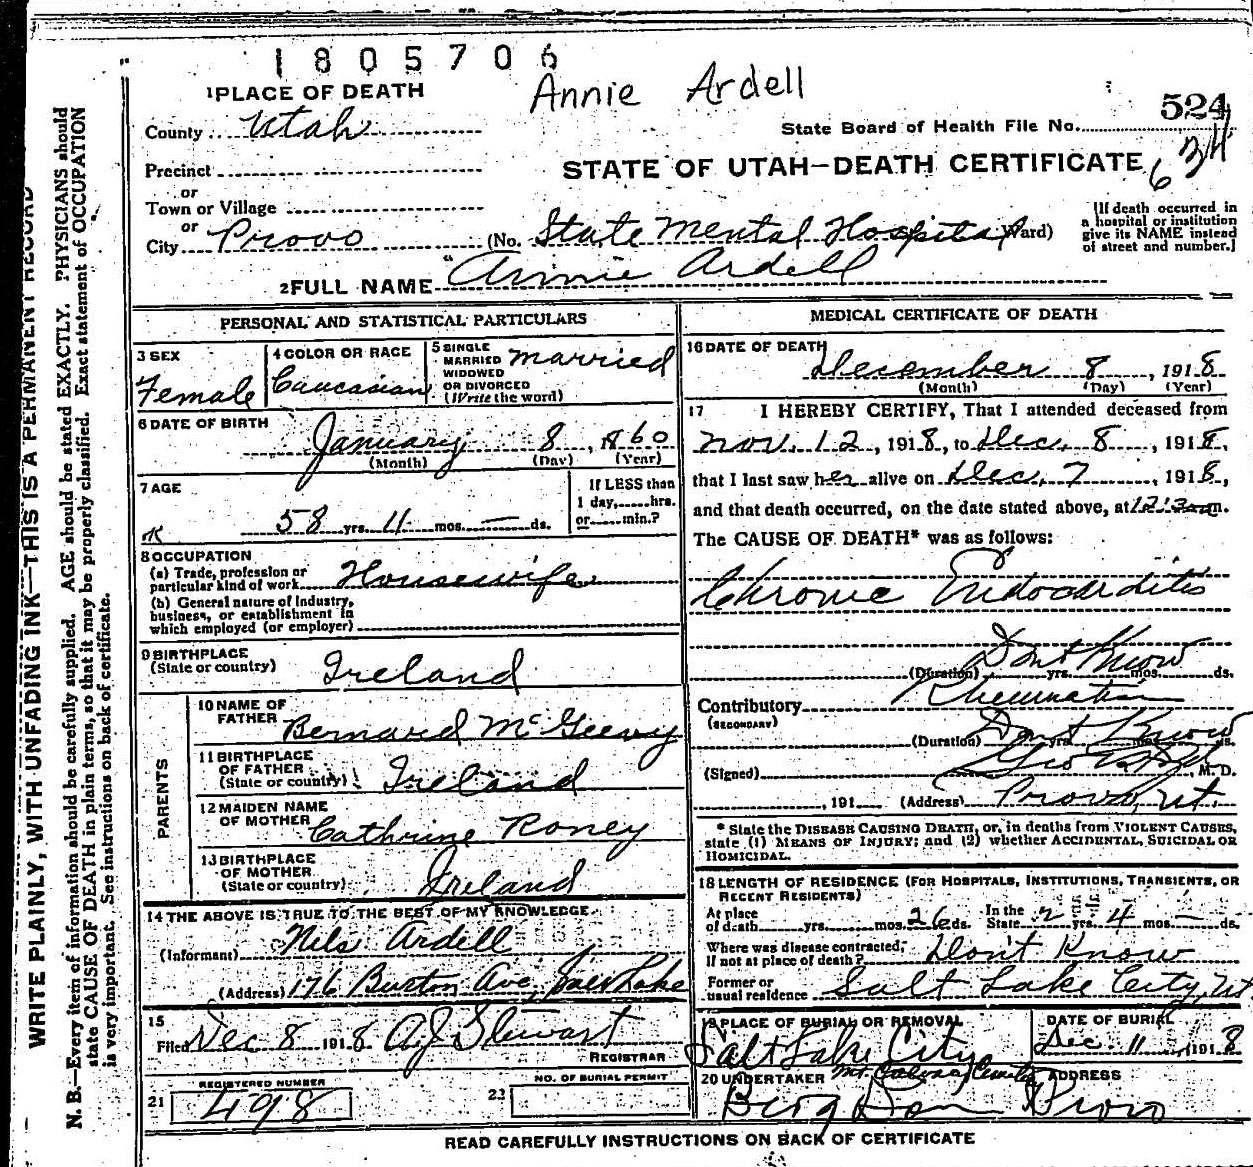 1805706
Annie Ardell
1 PLACE OF DEATH
County Utah
State Board of Health File No. 524
634
Precinct
STATE OF UTAH—DEATH CERTIFICATE
or
Town or Village
or
City Provo (No. State Mental Hospital Ward)
[If death occurred in
a hospital or institution
give its NAME instead
of street and number.]
2 FULL NAME Annie Ardell
PERSONAL AND STATISTICAL PARTICULARS
3 SEX
Female
4 COLOR OR RACE
Caucasian
5 SINGLE
MARRIED
WIDOWED
OR DIVORCED
(Write the word)
Married
6 DATE OF BIRTH
January 8, 1860
(Month) (Day) (Year)
7 AGE
58 yrs. 11 mos. — ds.
If LESS than
1 day, hrs.
or min.?
8 OCCUPATION
(a) Trade, profession or
particular kind of work Housewife
(b) General nature of industry,
business, or establishment in
which employed (or employer)
9 BIRTHPLACE
(State or country) Ireland
PARENTS
10 NAME OF
FATHER Bernard McGeevy
11 BIRTHPLACE
OF FATHER
(State or country) Ireland
12 MAIDEN NAME
OF MOTHER Cathrine Roney
13 BIRTHPLACE
OF MOTHER
(State or country) Ireland
14 THE ABOVE IS TRUE TO THE BEST OF MY KNOWLEDGE
(Informant) Nils Ardell
(Address) 176 Burton Ave, Salt Lake
15
Filed Dec 8 1918 A J Stewart
REGISTRAR
REGISTERED NUMBER
21 498
NO. OF BURIAL PERMIT
22
MEDICAL CERTIFICATE OF DEATH
16 DATE OF DEATH
December 8, 1918
(Month) (Day) (Year)
17 I HEREBY CERTIFY, That I attended deceased from
Nov. 12, 1918, to Dec. 8, 1918,
that I last saw her alive on Dec. 7, 1918,
and that death occurred, on the date stated above, at m.
The CAUSE OF DEATH* was as follows:
Chronic Endocarditis
(Duration) Dont Know yrs. mos. ds.
Contributory Rheumatism
(SECONDARY)
(Duration) Dont Know yrs. mos. ds.
(Signed) Geo , M. D.
, 191 (Address) Provo, Ut.
* State the DISEASE CAUSING DEATH, or, in deaths from VIOLENT CAUSES,
state (1) MEANS OF INJURY; and (2) whether ACCIDENTAL, SUICIDAL OR
HOMICIDAL.
18 LENGTH OF RESIDENCE (FOR HOSPITALS, INSTITUTIONS, TRANSIENTS, OR
RECENT RESIDENTS)
At place
of death yrs. mos. 26 ds.
In the
State 2 yrs. 4 mos. — ds.
Where was disease contracted,
if not at place of death? Don't Know
Former or
usual residence Salt Lake City, Ut
19 PLACE OF BURIAL OR REMOVAL
Salt Lake City
DATE OF BURIAL
Dec. 11, 1918
20 UNDERTAKER
Berg
ADDRESS
Provo
READ CAREFULLY INSTRUCTIONS ON BACK OF CERTIFICATE
WRITE PLAINLY, WITH UNFADING INK—THIS IS A PERMANENT RECORD
N. B.—Every item of information should be carefully supplied. AGE should be stated EXACTLY. PHYSICIANS should
state CAUSE OF DEATH in plain terms, so that it may be properly classified. Exact statement of OCCUPATION
is very important. See instructions on back of certificate.